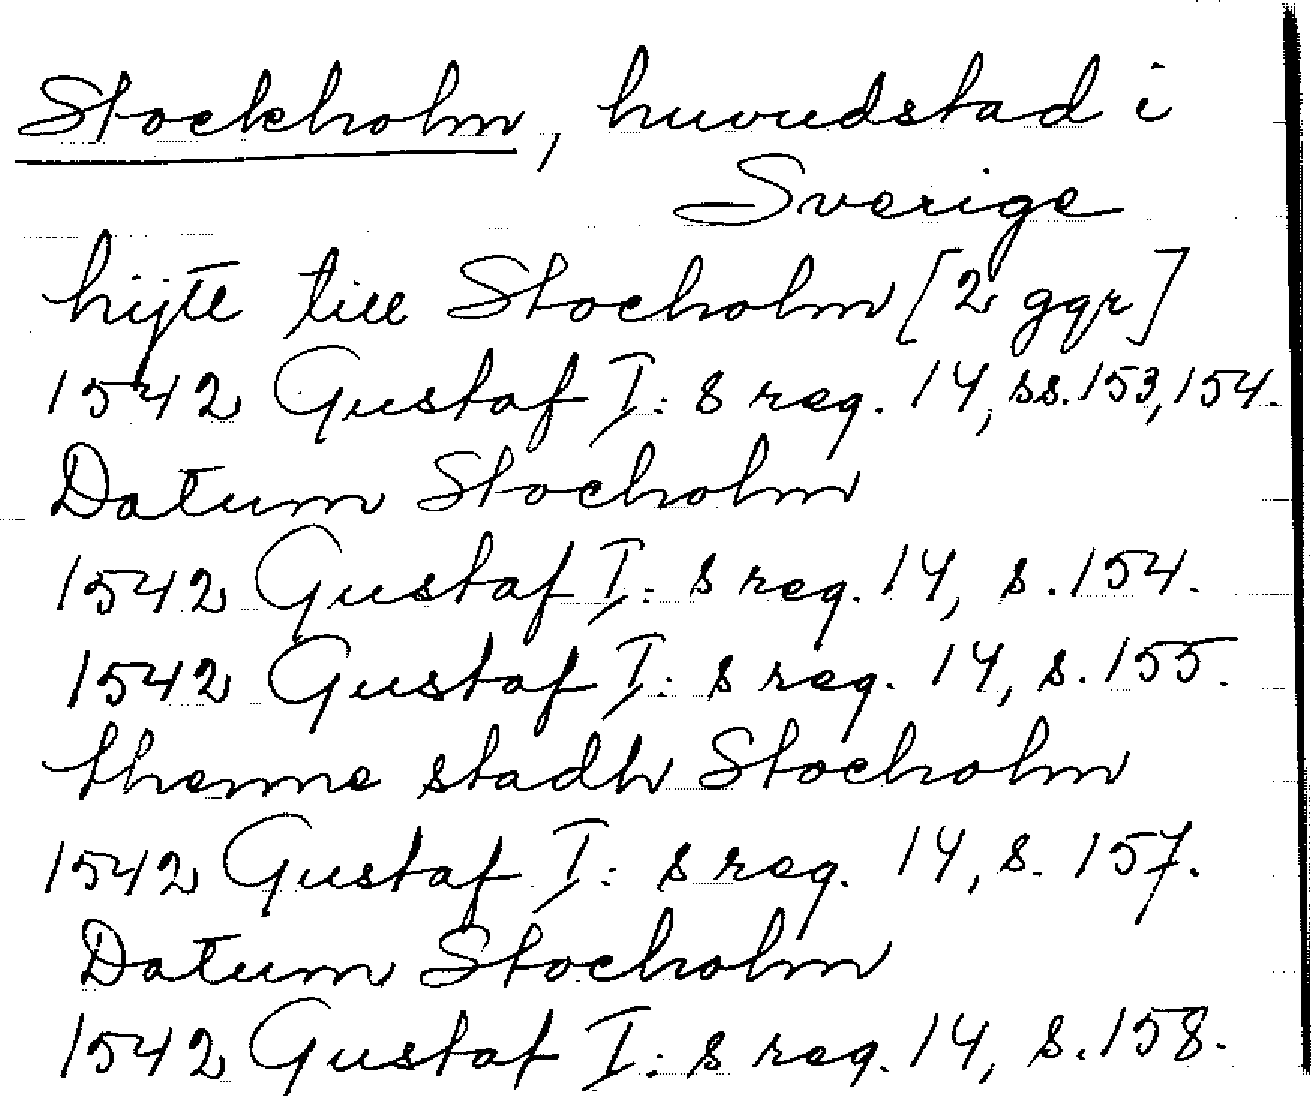 Stockholm, huvudstad i
Sverige
hijte till Stocholm [2 ggr]
1542 Gustaf I: s reg. 14, ss. 153, 154.
Datum Stocholm
1542 Gustaf I: s reg. 14, s. 154.
1542 Gustaf I: s reg. 14, s. 155.
thenne stadh Stocholm
1542 Gustaf I: s reg. 14, s. 157.
Datum Stocholm
1542 Gustaf I: s reg. 14, s. 158.